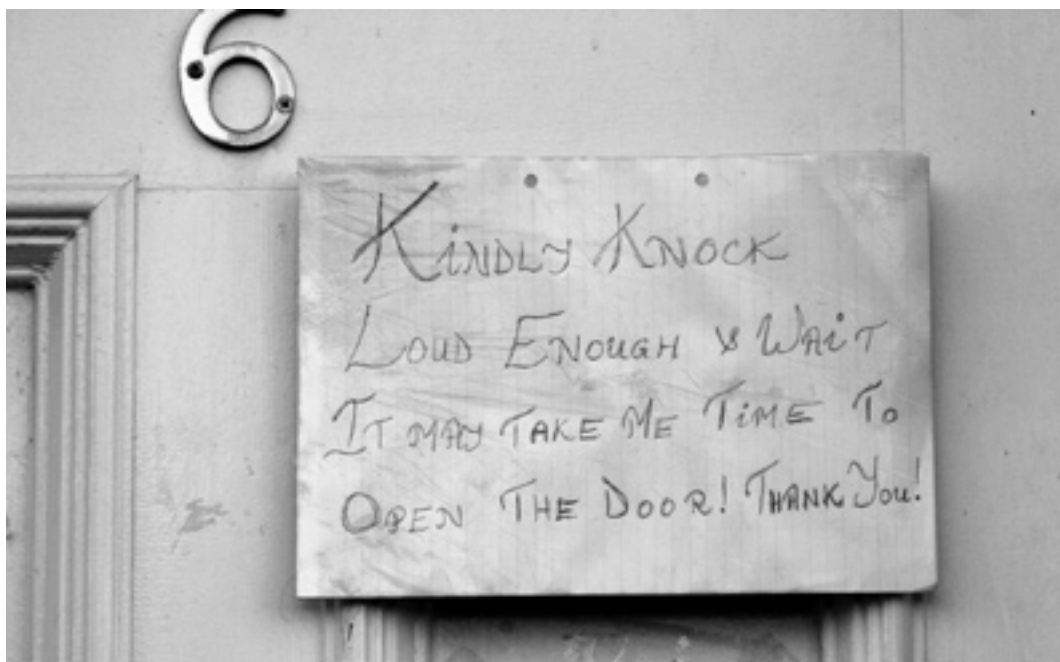 6
Kindly Knock
Loud Enough & Wait
It may Take Me Time To
Open The Door! Thank You!